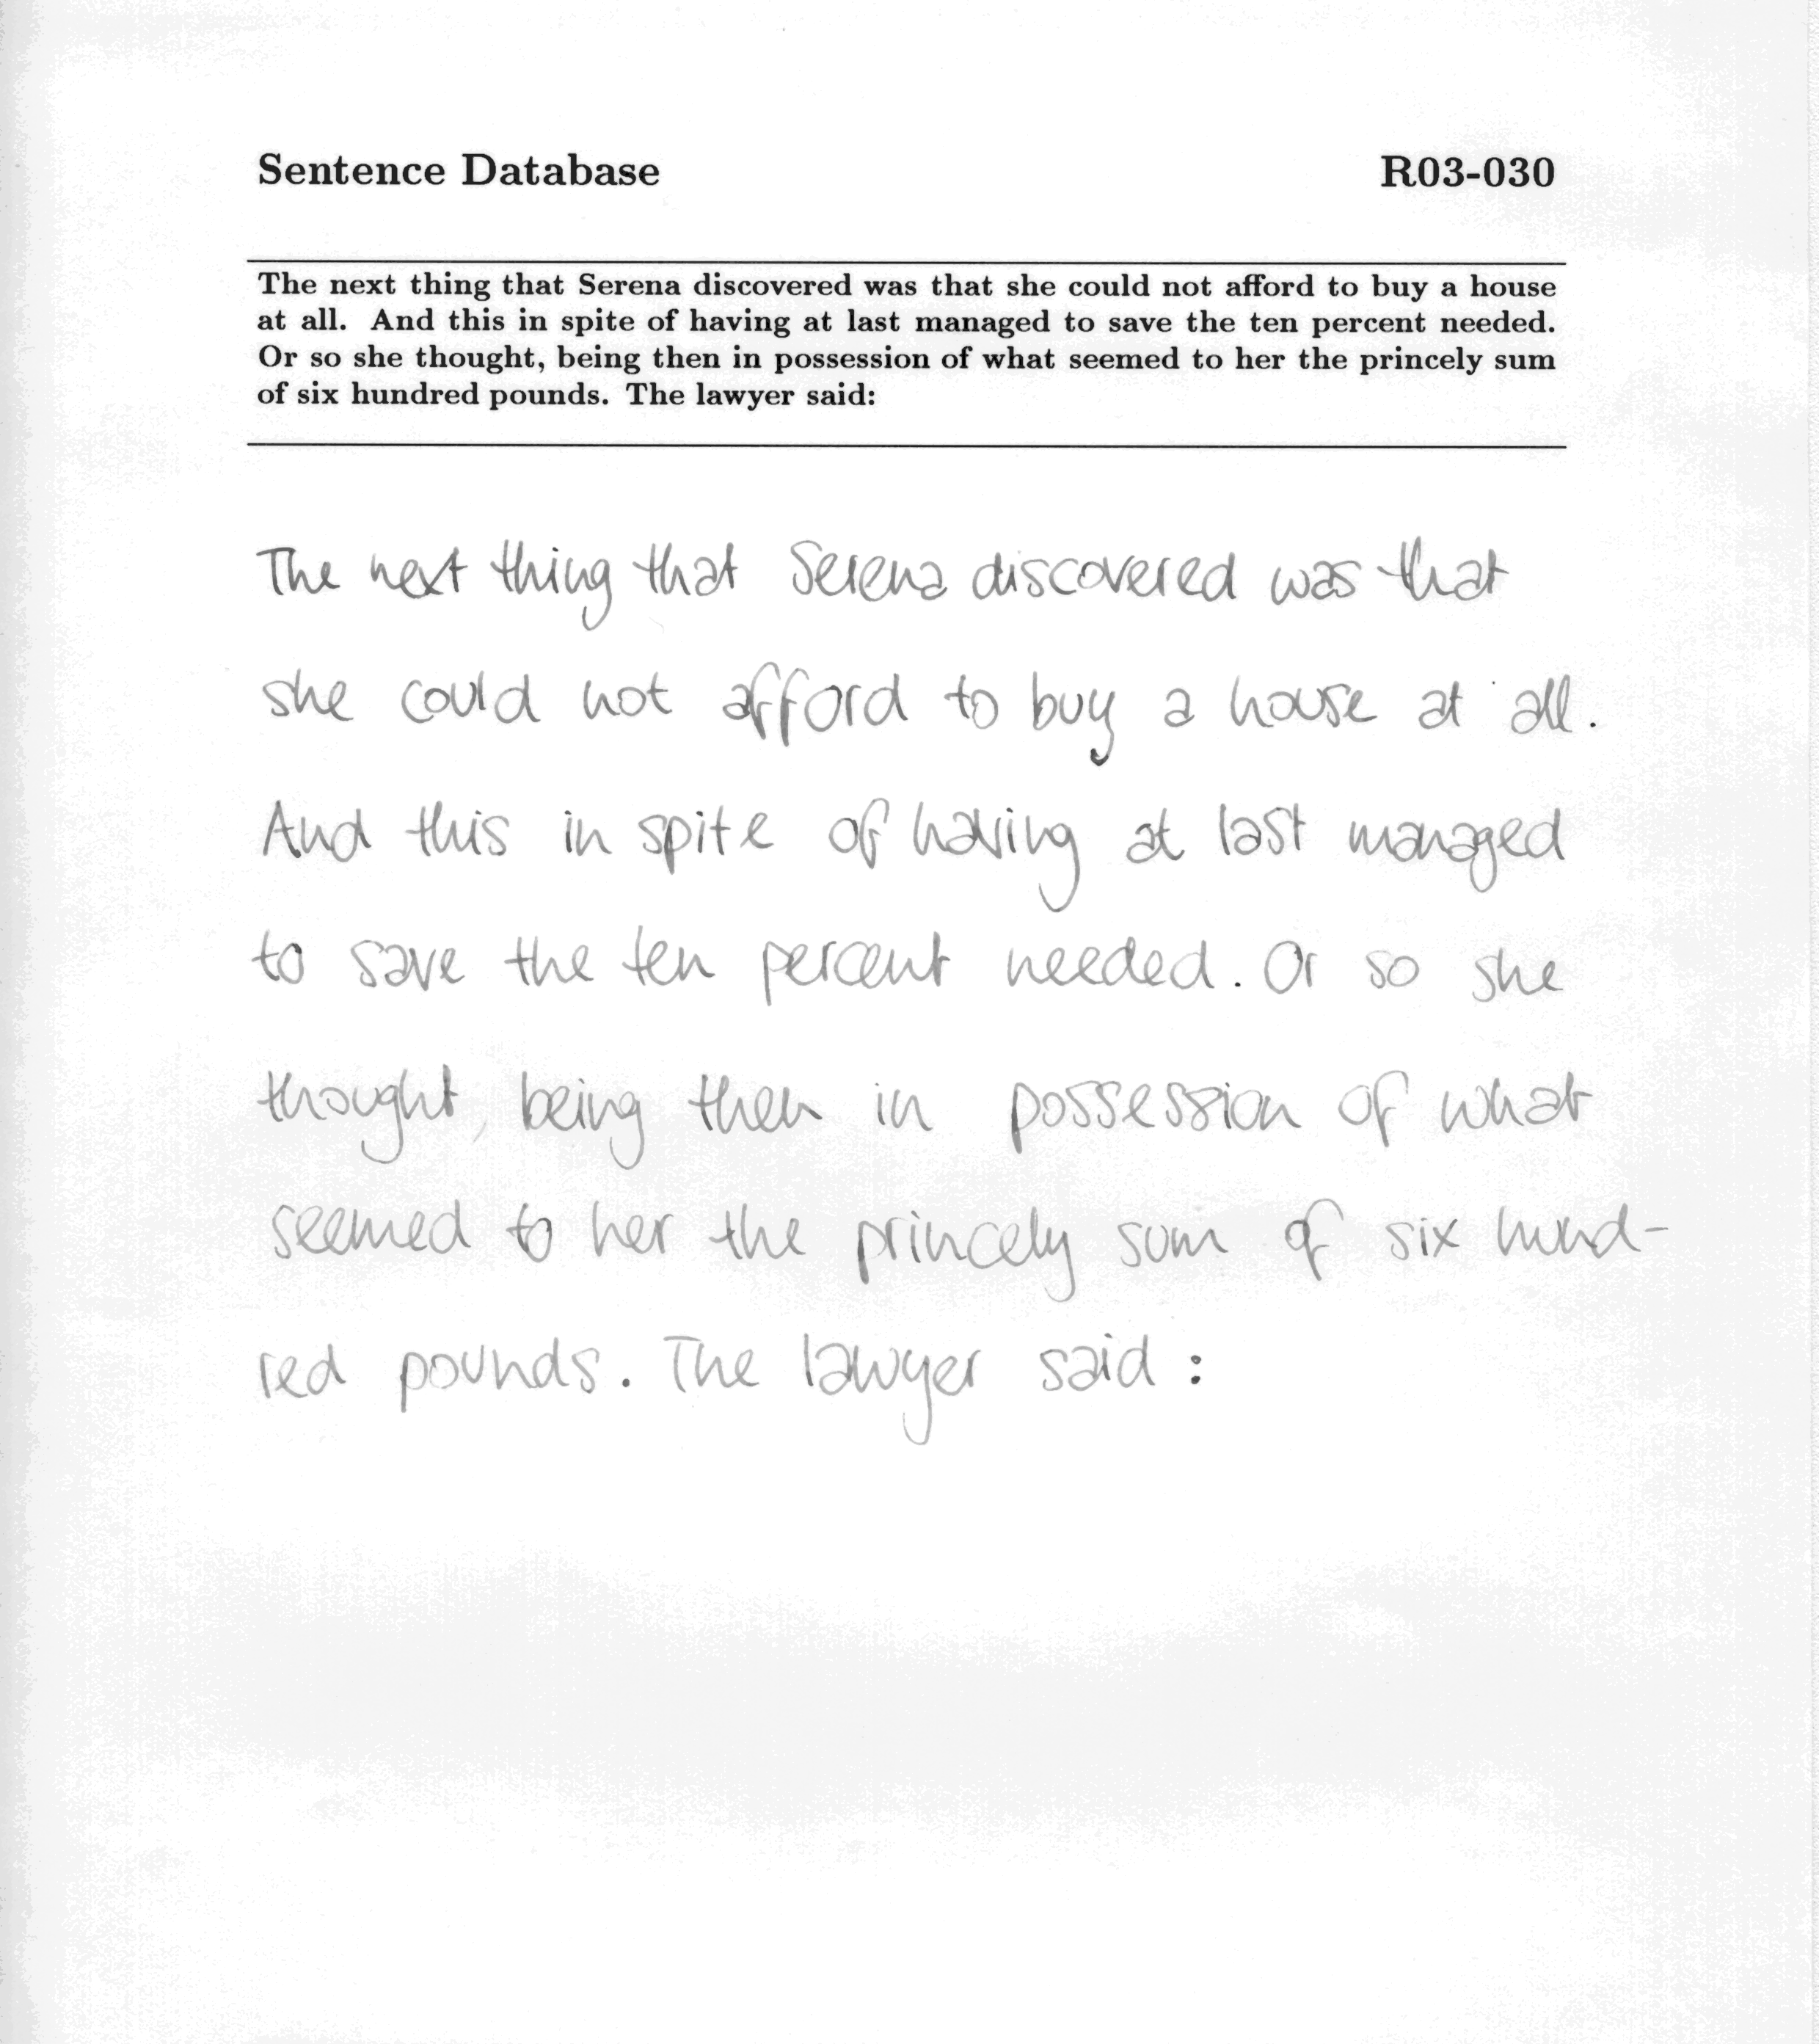 Sentence Database R03-030
The next thing that Serena discovered was that she could not afford to buy a house
at all. And this in spite of having at last managed to save the ten percent needed.
Or so she thought, being then in possession of what seemed to her the princely sum
of six hundred pounds. The lawyer said:
The next thing that Serena discovered was that
she could not afford to buy a house at all.
And this in spite of having at last managed
to save the ten percent needed. Or so she
thought, being then in possession of what
seemed to her the princely sum of six hund-
red pounds. The lawyer said :